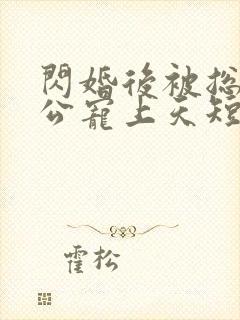 閃婚後被總
公寵上天短
霍松